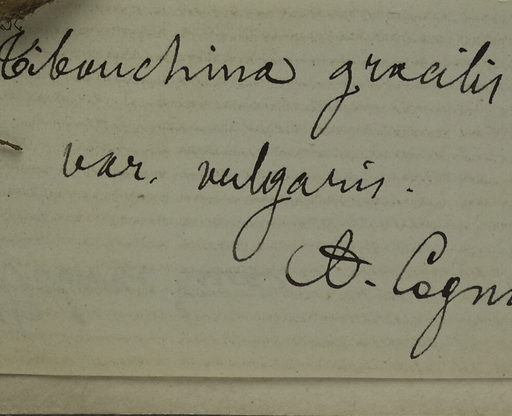 Tibouchina gracilis
var. vulgaris.
A. Cogn